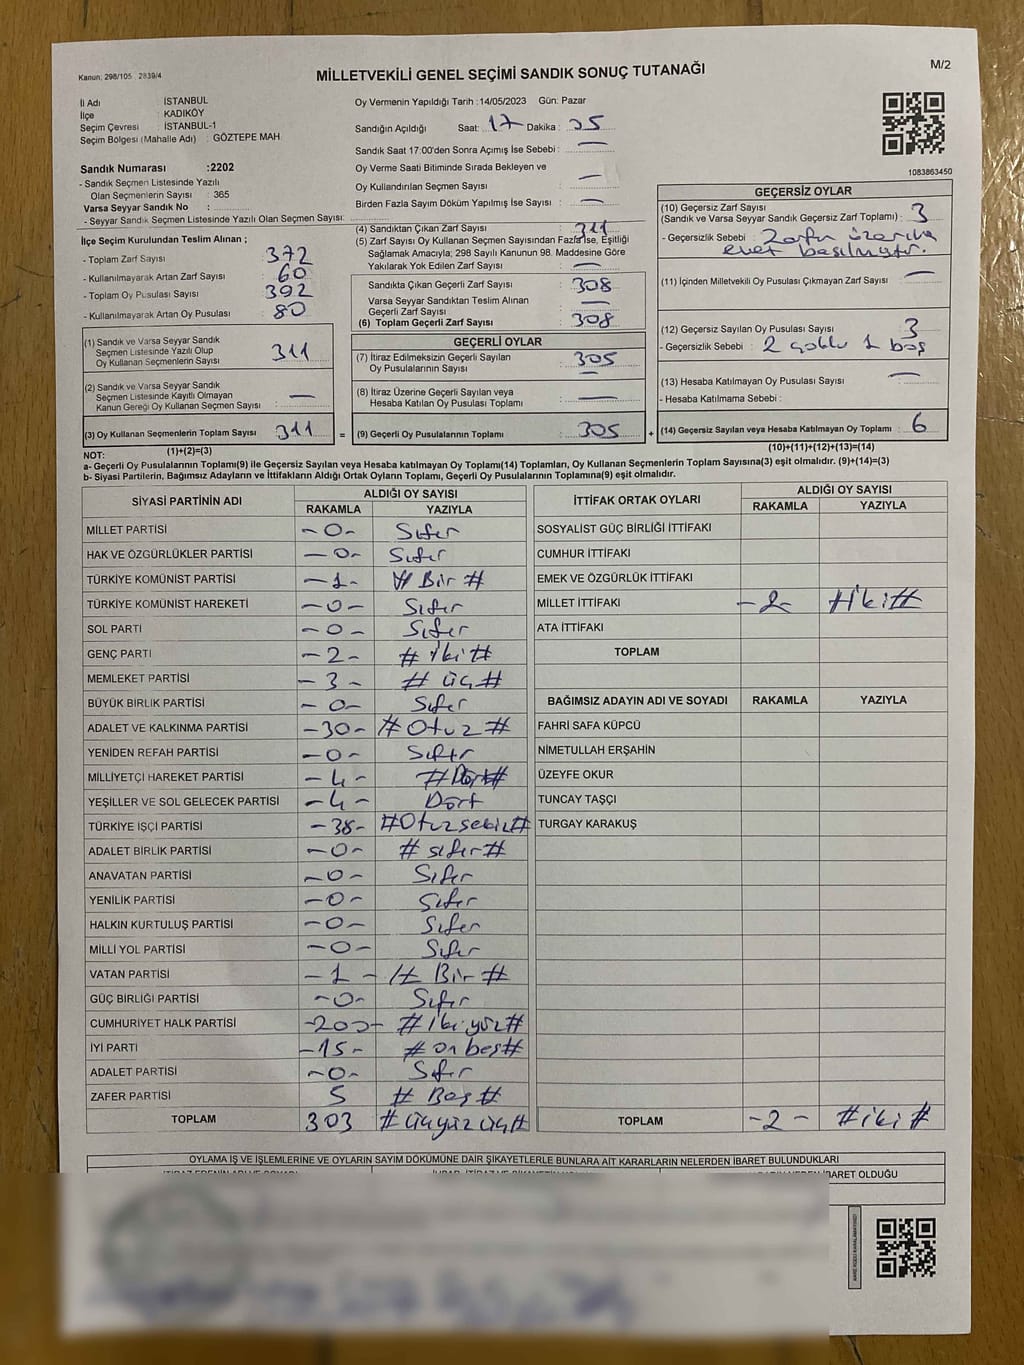 Kanun: 298/105 2839/4
MİLLETVEKİLİ GENEL SEÇİMİ SANDIK SONUÇ TUTANAĞI
M/2
İl Adı : İSTANBUL
İlçe : KADIKÖY
Seçim Çevresi : İSTANBUL-1
Seçim Bölgesi (Mahalle Adı) : GÖZTEPE MAH
Sandık Numarası :2202
- Sandık Seçmen Listesinde Yazılı
Olan Seçmenlerin Sayısı : 365
Varsa Seyyar Sandık No :
- Seyyar Sandık Seçmen Listesinde Yazılı Olan Seçmen Sayısı:
Oy Vermenin Yapıldığı Tarih :14/05/2023 Gün: Pazar
Sandığın Açıldığı Saat: 17 Dakika : 25
Sandık Saat 17:00'den Sonra Açımış İse Sebebi : —
Oy Verme Saati Bitiminde Sırada Bekleyen ve
Oy Kullandırılan Seçmen Sayısı : —
Birden Fazla Sayım Döküm Yapılmış İse Sayısı : —
1083863450
İlçe Seçim Kurulundan Teslim Alınan ;
- Toplam Zarf Sayısı : 372
- Kullanılmayarak Artan Zarf Sayısı : 60
- Toplam Oy Pusulası Sayısı : 392
- Kullanılmayarak Artan Oy Pusulası : 80
(1) Sandık ve Varsa Seyyar Sandık
Seçmen Listesinde Yazılı Olup
Oy Kullanan Seçmenlerin Sayısı : 311
(2) Sandık ve Varsa Seyyar Sandık
Seçmen Listesinde Kayıtlı Olmayan
Kanun Gereği Oy Kullanan Seçmen Sayısı : —
(3) Oy Kullanan Seçmenlerin Toplam Sayısı : 311
(1)+(2)=(3)
(4) Sandıktan Çıkan Zarf Sayısı : 311
(5) Zarf Sayısı Oy Kullanan Seçmen Sayısından Fazla İse, Eşitliği
Sağlamak Amacıyla; 298 Sayılı Kanunun 98. Maddesine Göre
Yakılarak Yok Edilen Zarf Sayısı : —
Sandıkta Çıkan Geçerli Zarf Sayısı : 308
Varsa Seyyar Sandıktan Teslim Alınan
Geçerli Zarf Sayısı : —
(6) Toplam Geçerli Zarf Sayısı : 308
GEÇERLİ OYLAR
(7) İtiraz Edilmeksizin Geçerli Sayılan
Oy Pusulalarının Sayısı : 305
(8) İtiraz Üzerine Geçerli Sayılan veya
Hesaba Katılan Oy Pusulası Toplamı : —
= (9) Geçerli Oy Pusulalarının Toplamı : 305 +
GEÇERSİZ OYLAR
(10) Geçersiz Zarf Sayısı
(Sandık ve Varsa Seyyar Sandık Geçersiz Zarf Toplamı) : 3
- Geçersizlik Sebebi : Zarfın üzerine
evet basılmıştır.
(11) İçinden Milletvekili Oy Pusulası Çıkmayan Zarf Sayısı : —
(12) Geçersiz Sayılan Oy Pusulası Sayısı : 3
- Geçersizlik Sebebi : 2 çoklu 1 boş
(13) Hesaba Katılmayan Oy Pusulası Sayısı : —
- Hesaba Katılmama Sebebi :
(14) Geçersiz Sayılan veya Hesaba Katılmayan Oy Toplamı : 6
(10)+(11)+(12)+(13)=(14)
NOT:
a- Geçerli Oy Pusulasının Toplamı(9) ile Geçersiz Sayılan veya Hesaba katılmayan Oy Toplamı(14) Toplamları, Oy Kullanan Seçmenlerin Toplam Sayısına(3) eşit olmalıdır. (9)+(14)=(3)
b- Siyasi Partilerin, Bağımsız Adayların ve İttifakların Aldığı Ortak Oyların Toplamı, Geçerli Oy Pusulalarının Toplamına(9) eşit olmalıdır.
SİYASİ PARTİNİN ADI ALDIĞI OY SAYISI
RAKAMLA YAZIYLA
MİLLET PARTİSİ -0- Sıfır
HAK VE ÖZGÜRLÜKLER PARTİSİ -0- Sıfır
TÜRKİYE KOMÜNİST PARTİSİ -1- # Bir #
TÜRKİYE KOMÜNİST HAREKETİ -0- Sıfır
SOL PARTİ -0- Sıfır
GENÇ PARTİ -2- # iki #
MEMLEKET PARTİSİ -3- # üç #
BÜYÜK BİRLİK PARTİSİ -0- Sıfır
ADALET VE KALKINMA PARTİSİ -30- # Otuz #
YENİDEN REFAH PARTİSİ -0- Sıfır
MİLLİYETÇİ HAREKET PARTİSİ -4- # Dört #
YEŞİLLER VE SOL GELECEK PARTİSİ -4- Dört
TÜRKİYE İŞÇİ PARTİSİ -38- #Otuzsekiz#
ADALET BİRLİK PARTİSİ -0- # sıfır #
ANAVATAN PARTİSİ -0- Sıfır
YENİLİK PARTİSİ -0- Sıfır
HALKIN KURTULUŞ PARTİSİ -0- Sıfır
MİLLİ YOL PARTİSİ -0- Sıfır
VATAN PARTİSİ -1- # Bir #
GÜÇ BİRLİĞİ PARTİSİ -0- Sıfır
CUMHURİYET HALK PARTİSİ -200- # ikiyüz #
İYİ PARTİ -15- # on beş #
ADALET PARTİSİ -0- Sıfır
ZAFER PARTİSİ 5 # Beş #
TOPLAM 303 # üçyüz üç #
İTTİFAK ORTAK OYLARI ALDIĞI OY SAYISI
RAKAMLA YAZIYLA
SOSYALİST GÜÇ BİRLİĞİ İTTİFAKI
CUMHUR İTTİFAKI
EMEK VE ÖZGÜRLÜK İTTİFAKI
MİLLET İTTİFAKI -2- #iki#
ATA İTTİFAKI
TOPLAM
BAĞIMSIZ ADAYIN ADI VE SOYADI RAKAMLA YAZIYLA
FAHRİ SAFA KÜPCÜ
NİMETULLAH ERŞAHİN
ÜZEYFE OKUR
TUNCAY TAŞÇI
TURGAY KARAKUŞ
TOPLAM -2- #iki#
OYLAMA İŞ VE İŞLEMLERİNE VE OYLARIN SAYIM DÖKÜMÜNE DAİR ŞİKAYETLERLE BUNLARA AİT KARARLARIN NELERDEN İBARET BULUNDUKLARI
İBARET OLDUĞU